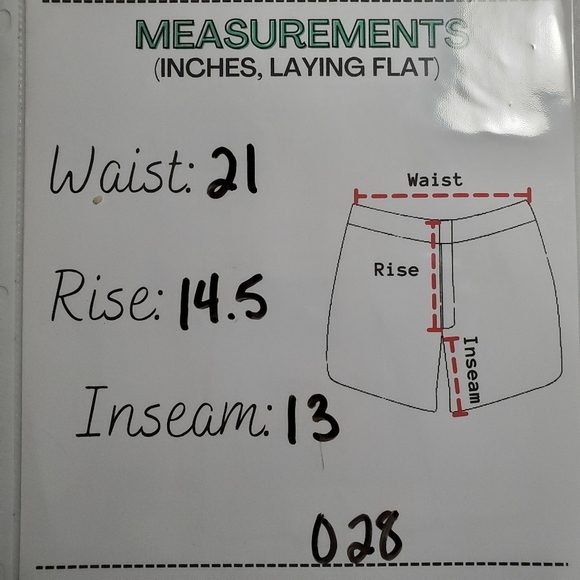 MEASUREMENTS
(INCHES, LAYING FLAT)
Waist: 21
Waist
Rise
Rise: 14.5
Inseam
Inseam: 13
028